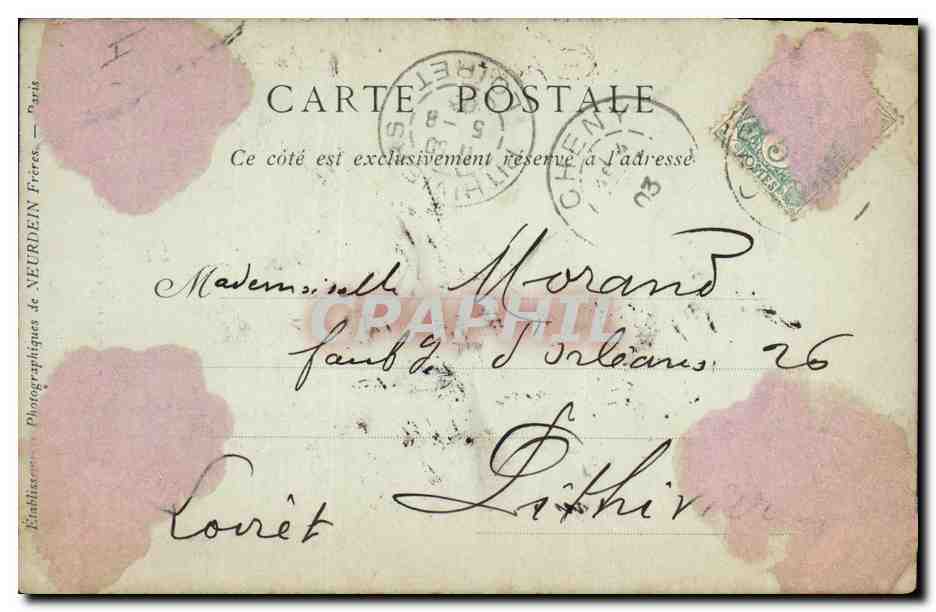 CARTE POSTALE
Ce côté est exclusivement réservé à l'adresse
Mademoiselle Morand
faubg d'Orléans 26
Pithiviers
Loiret
Photographiques de NEURDEIN Frères. — Paris
PITHIVIERS
LOIRET
5 - 8
CHENY
03
5
POSTES
CPAPHIL